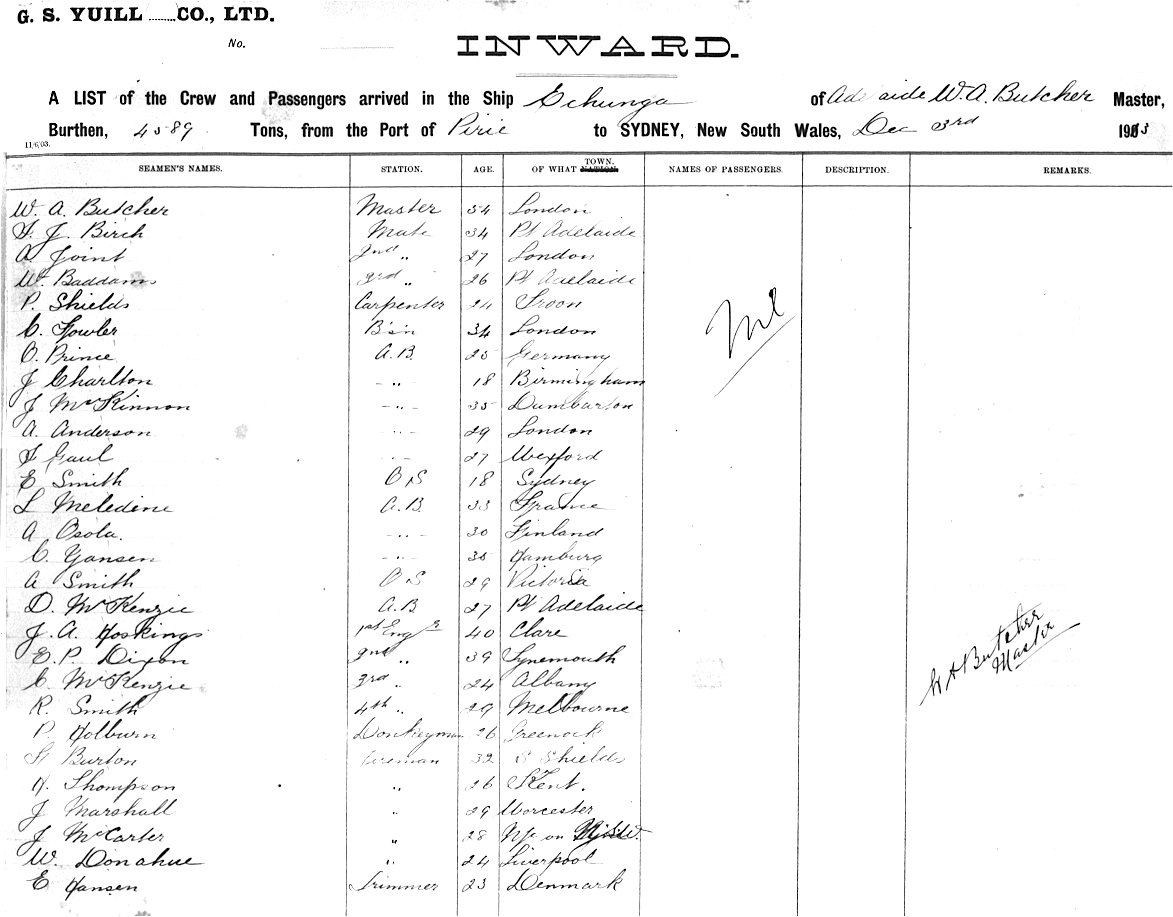 G. S. YUILL ........ CO., LTD.
No.
INWARD.
A LIST of the Crew and Passengers arrived in the Ship Echunga of Adelaide W. A. Butcher Master,
Burthen, 4589 Tons, from the Port of Pirie to SYDNEY, New South Wales, Dec 3rd 1903
11/6/03.
SEAMEN'S NAMES. STATION. AGE. OF WHAT NATION. TOWN. NAMES OF PASSENGERS. DESCRIPTION. REMARKS.
W. A. Butcher Master 54 London
J. Birch Mate 34 Pt Adelaide
A Joint 2nd " 27 London
W. Baddams 3rd " 26 Pt Adelaide
P. Shields Carpenter 24 Troon
C. Fowler B's'n 34 London
O. Prince A.B. 25 Germany
J Charlton - " - 18 Birmingham
J McKinnon - " - 35 Dumbarton
A. Anderson - " - 29 London
Gaul - " - 27 Wexford
E Smith O S 18 Sydney
L Meledine A.B 33 France
A Osola. - " - 30 Finland
C. Yansen - " - 35 Hamburg
A Smith O S 29 Victoria
D. McKenzie A.B 27 Pt Adelaide
J. A. Hoskings 1st Engr 40 Clare
E. P. Dixon 2nd " 39 Tynemouth
C. McKenzie 3rd " 24 Albany
R. Smith 4th " 29 Melbourne
P. Holburn Donkeyman 26 Greenock
Burton Fireman 32 S Shields
H. Thompson " 26 Kent.
J Marshall " 29 Worcester
J McCarter " 28 on
W. Donahue " 24 Liverpool
E Hansen Trimmer 23 Denmark
Nil
W A Butcher
Master